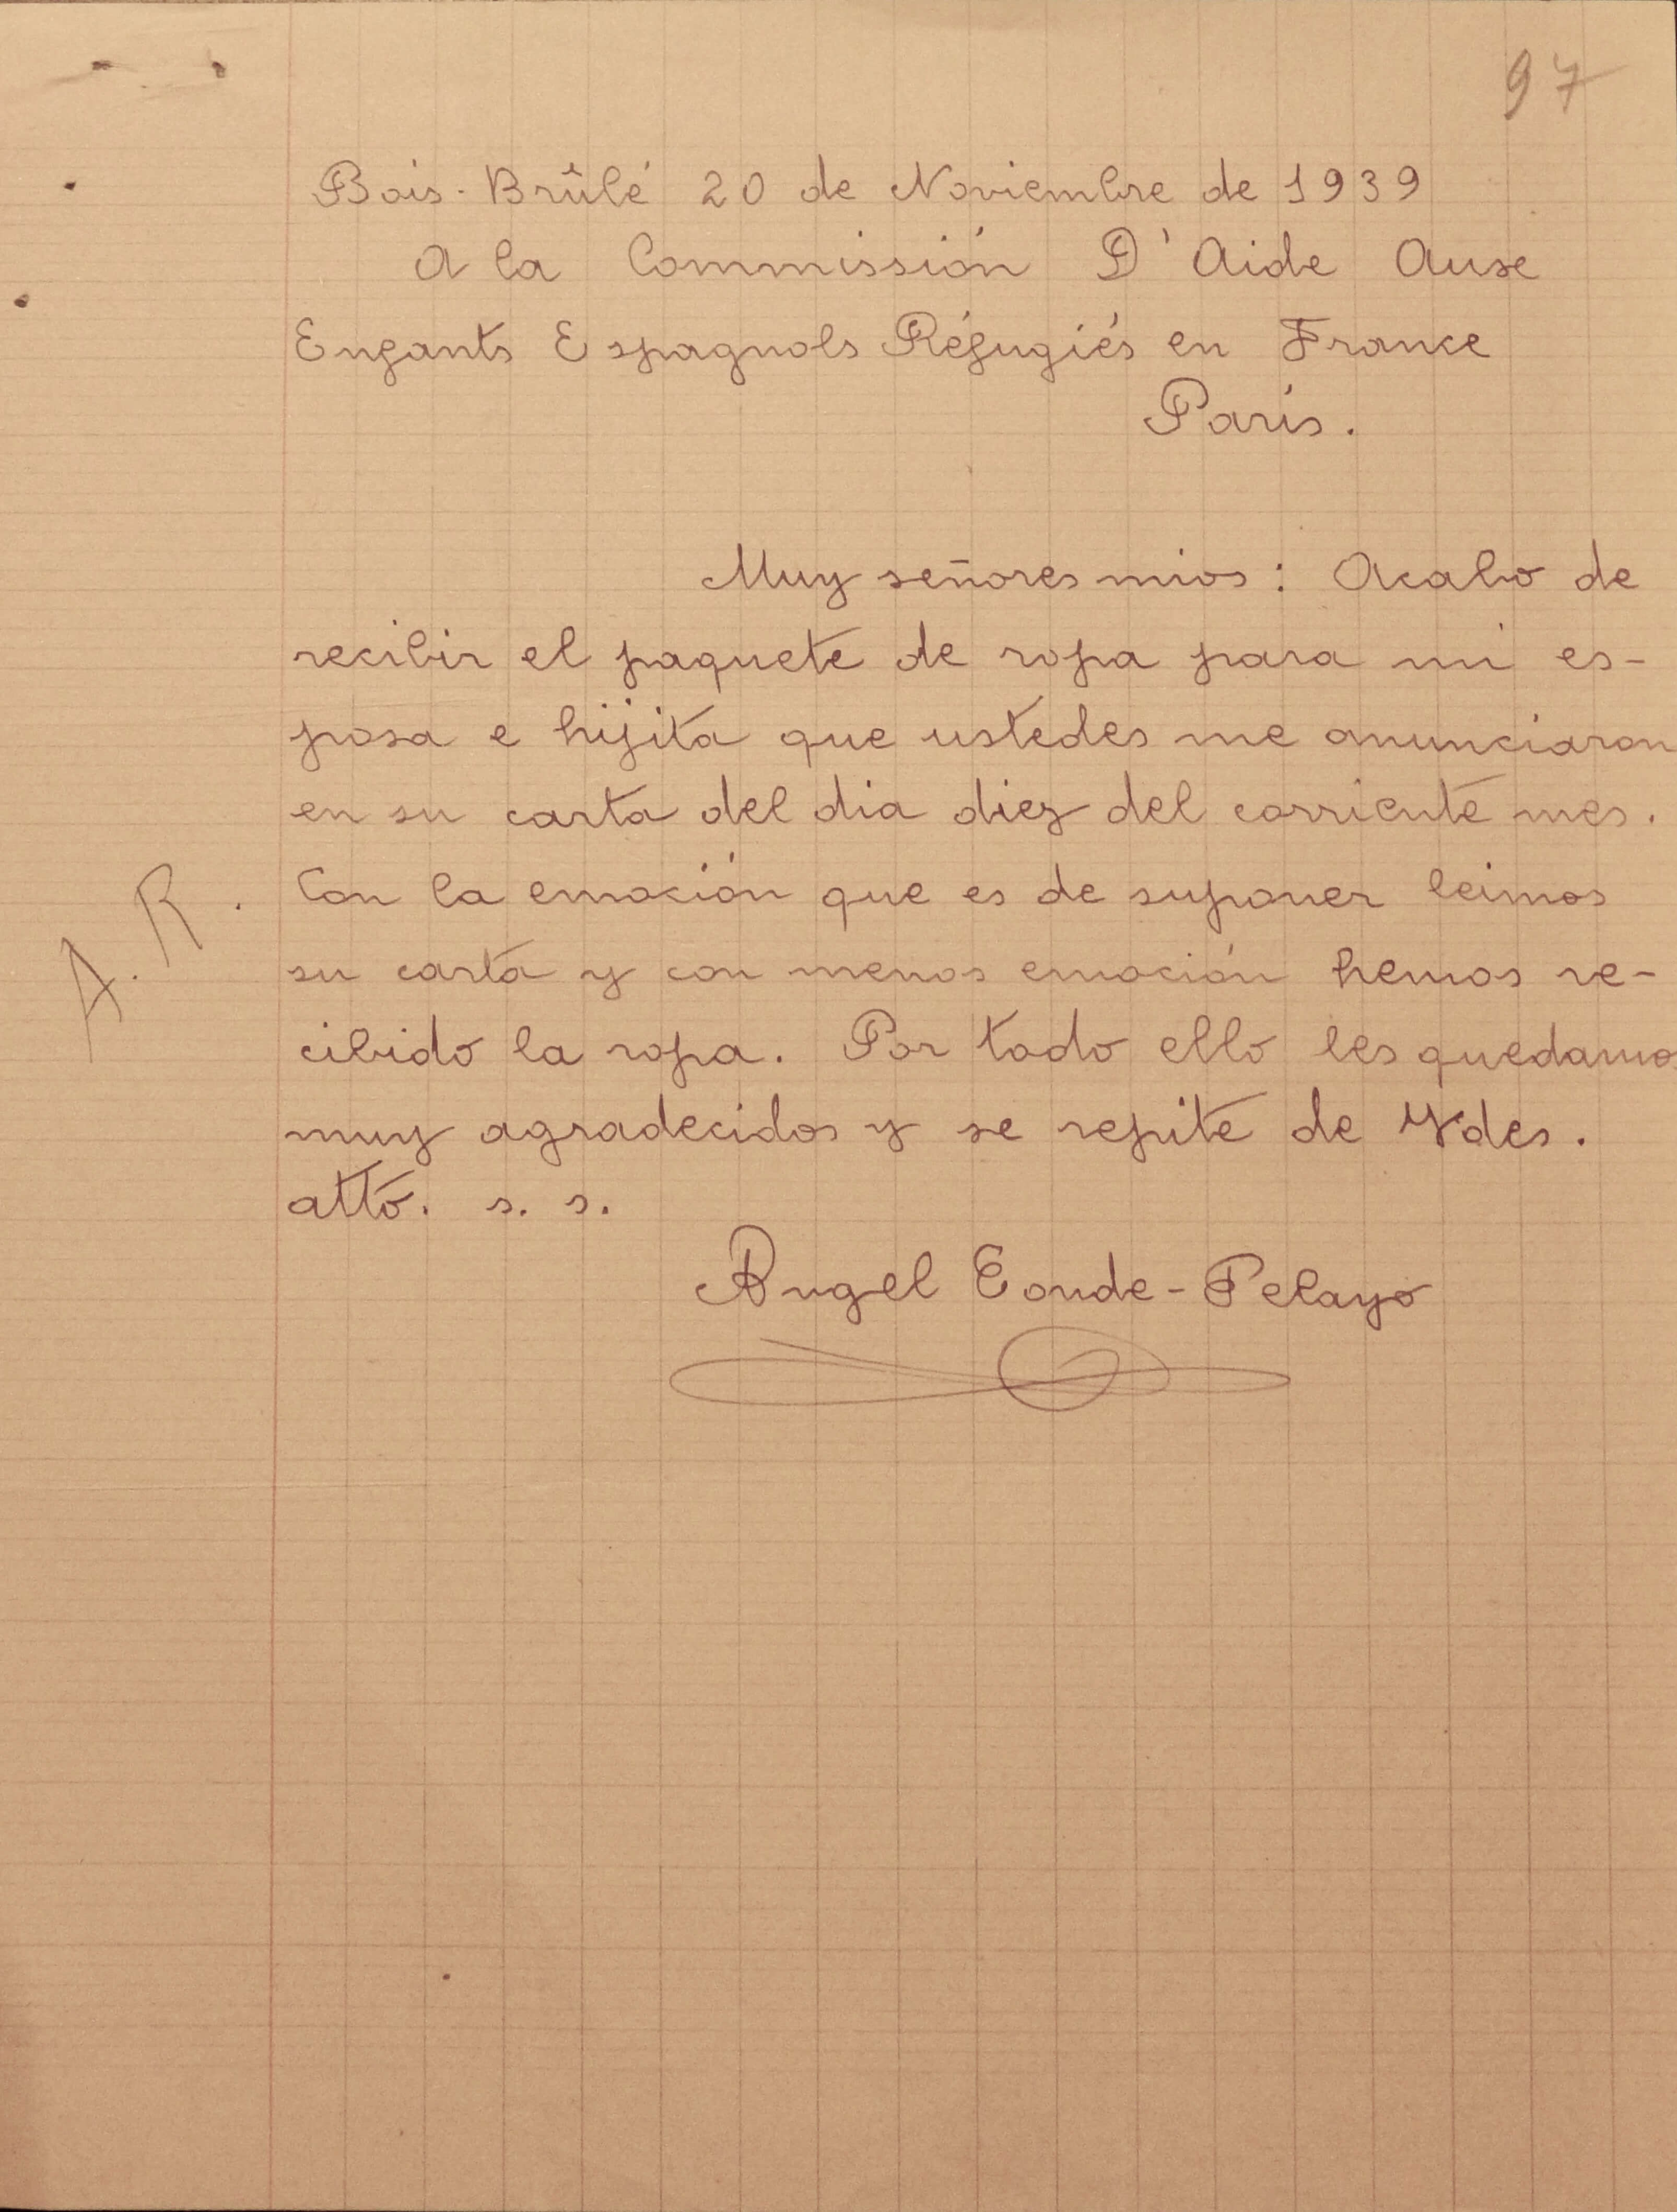 97
Bois-Brûlé 20 de Noviembre de 1939
A la Commissión D'Aide Aux
Enfants Espagnols Réfugiés en France
París.
Muy señores mios: Acabo de
recibir el paquete de ropa para mi es-
posa e hijita que ustedes me anunciaron
en su carta del dia diez del corriente mes.
Con la emoción que es de suponer leimos
su carta y con menos emoción hemos re-
cibido la ropa. Por todo ello les quedamos
muy agradecidos y se repite de Vdes.
atto. s. s.
Angel Conde-Pelayo
A. R.